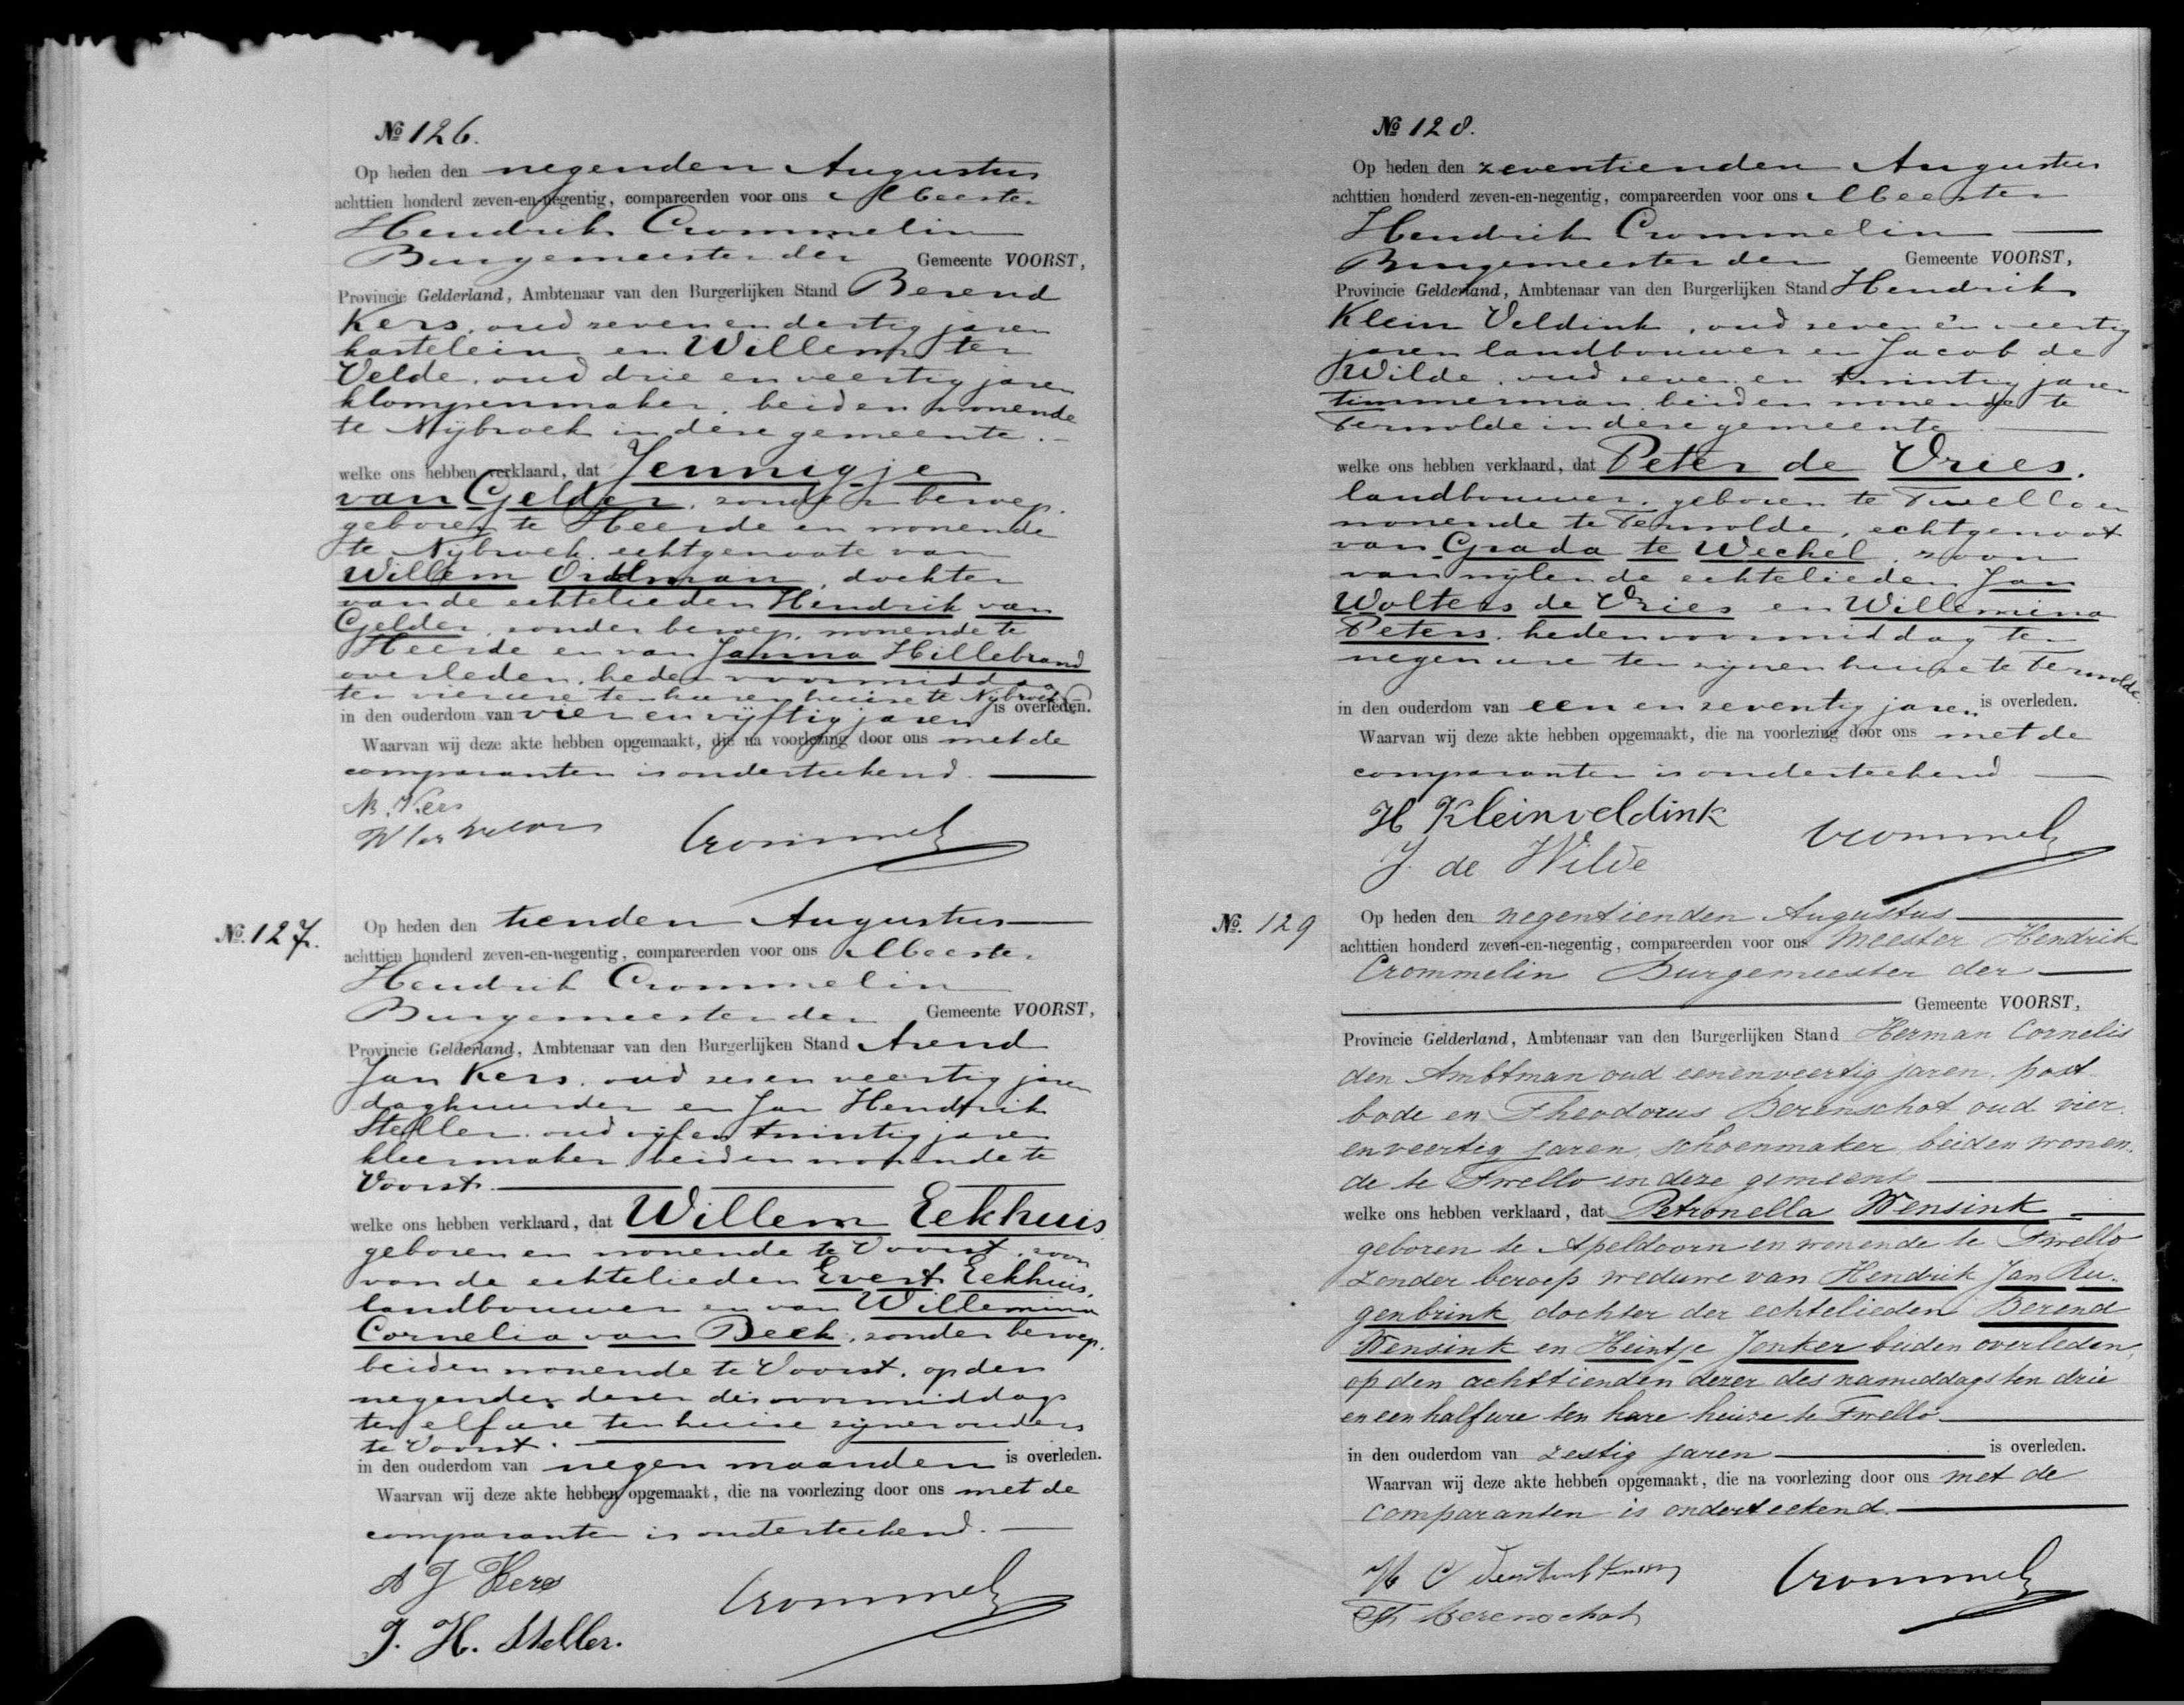 № 126.
Op heden den negenden Augustus
achttien honderd zeven-en-negentig, compareerden voor ons Meester
Hendrik Crommelin
Burgemeester der Gemeente VOORST,
Provincie Gelderland, Ambtenaar van den Burgerlijken Stand Berend
Kers, oud zeven en dertig jaren
kastelein en Willem ter
Velde, oud drie en veertig jaren
klompenmaker, beiden wonende
te Nijbroek in deze gemeente. —
welke ons hebben verklaard, dat Jennigje
van Gelder, zonder beroep,
geboren te Heerde en wonende
te Nijbroek, echtgenoote van
Willem Ordelman, dochter
van de echtelieden Hendrik van
Gelder, zonder beroep, wonende te
Heerde en van Janna Hillebrand
overleden, heden voormiddag
ten vier ure ten haren huize te Nijbroek
in den ouderdom van vier en vijftig jaren is overleden.
Waarvan wij deze akte hebben opgemaakt, die na voorlezing door ons met de
comparanten is onderteekend. —
B. Kers
W ter Velde
Crommel
№. 127.
Op heden den tienden Augustus —
achttien honderd zeven-en-negentig, compareerden voor ons Meester
Hendrik Crommelin
Burgemeester der Gemeente VOORST,
Provincie Gelderland, Ambtenaar van den Burgerlijken Stand Arend
Jan Kers, oud zes en veertig jaren
daghuurder en Jan Hendrik
Steller, oud vijf en twintig jaren
kleermaker, beiden wonende te
Voorst. —
welke ons hebben verklaard, dat Willem Eekhuis
geboren en wonende te Voorst, zoon
van de echtelieden Evert Eekhuis,
landbouwer en van Willemina
Cornelia van Beek, zonder beroep,
beiden wonende te Voorst, op den
negenden dezer des voormiddags
ten elf ure ten huize zijner ouders
te Voorst. —
in den ouderdom van negen maanden is overleden.
Waarvan wij deze akte hebben opgemaakt, die na voorlezing door ons met de
comparanten is onderteekend. —
A J Kers
J. H. Steller.
Crommel
№ 128.
Op heden den zeventienden Augustus
achttien honderd zeven-en-negentig, compareerden voor ons Meester
Hendrik Crommelin —
Burgemeester der Gemeente VOORST,
Provincie Gelderland, Ambtenaar van den Burgerlijken Stand Hendrik
Klein Veldink, oud zeven en veertig
jaren landbouwer en Jacob de
Wilde, oud zeven en twintig jaren
timmerman, beiden wonende te
Terwolde in deze gemeente. —
welke ons hebben verklaard, dat Peter de Vries,
landbouwer, geboren te Twello en
wonende te Terwolde, echtgenoot
van Grada te Wechel, zoon
van wijlen de echtelieden Jan
Wolters de Vries en Willemina
Peters, heden voormiddag ten
negen ure ten zijnen huize te Terwolde
in den ouderdom van een en zeventig jaren is overleden.
Waarvan wij deze akte hebben opgemaakt, die na voorlezing door ons met de
comparanten is onderteekend —
H Kleinveldink
J. de Wilde
Crommel
№. 129
Op heden den negentienden Augustus —
achttien honderd zeven-en-negentig, compareerden voor ons Meester Hendrik
Crommelin Burgemeester der —
— Gemeente VOORST,
Provincie Gelderland, Ambtenaar van den Burgerlijken Stand Herman Cornelis
den Ambtman oud eenenveertig jaren, post
bode en Theodorus Berenschot oud vier
en veertig jaren, schoenmaker, beiden wonen-
de te Twello in deze gemeent —
welke ons hebben verklaard, dat Petronella Wensink —
geboren te Apeldoorn en wonende te Twello
zonder beroep weduwe van Hendrik Jan Ru-
genbrink dochter der echtelieden Berend
Wensink en Heintje Jonker beiden overleden,
op den achttienden dezer des namiddags ten drie
en een half ure ten hare huize te Twello —
in den ouderdom van zestig jaren — is overleden.
Waarvan wij deze akte hebben opgemaakt, die na voorlezing door ons met de
comparanten is onderteekend. —
H C
Th Berenschot
Crommel